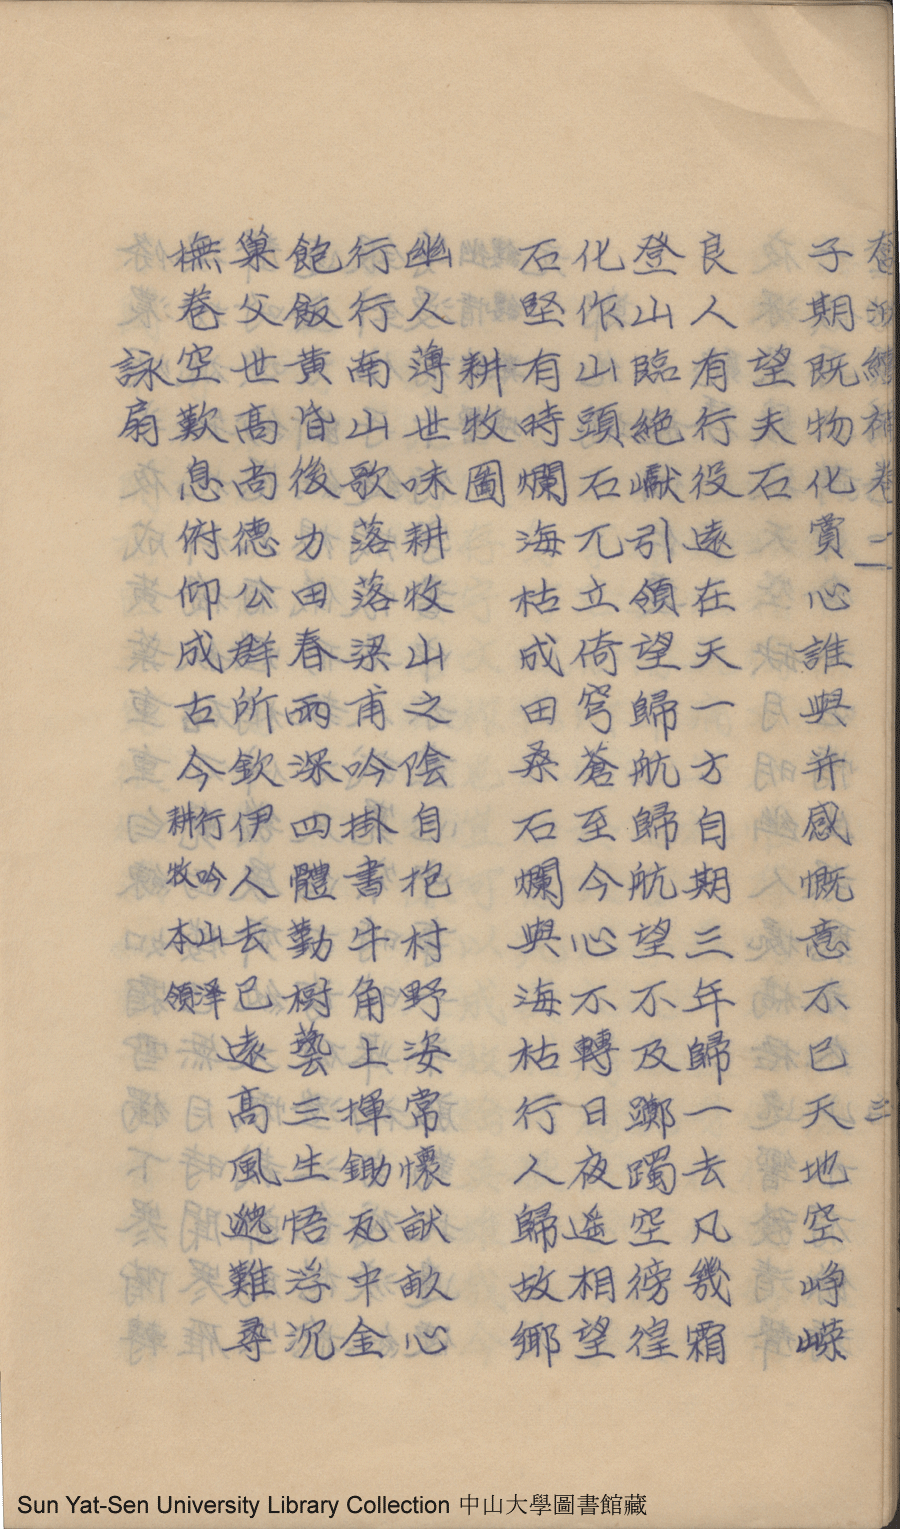 子期既物化賞心誰與并感慨意不已天地空崢嶸
望夫石
良人有行役遠在天一方自期三年歸一去凡幾霜
登山臨絶巘引領望歸航歸航望不及躑躅空徬徨
化作山頭石兀立倚穹蒼至今心不轉日夜遥相望
石堅有時爛海枯成田桑石爛與海枯行人歸故鄉
耕牧圖
幽人薄世味耕牧山之陰自抱村野姿常懷畎畝心
行行南山歌落落梁甫吟掛書牛角上揮鋤瓦中金
飽飯黄昏後力田春雨深四體勤樹藝三生悟浮沉
巢父世高尚德公群所欽伊人去已遠高風邈難尋
撫卷空歎息俯仰成古今行吟山澤耕牧本領
詠扇
Sun Yat-Sen University Library Collection 中山大學圖書館藏